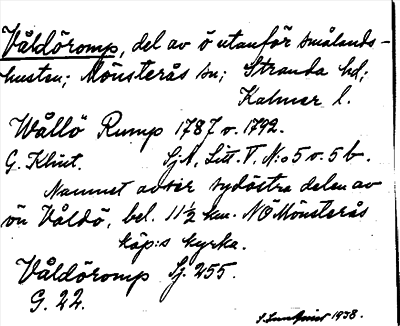 Våldöromp, del av ö utanför Smålands-
kusten; Mönsterås sn; Stranda hd;
Kalmar l.
Wållö Rump 1787 o. 1792.
G. Klint. Sj A, Litt. V. N:o 5 o. 5 b.
Namnet avser sydöstra delen av
ön Våldö, bel. 11½ km. NÖ Mönsterås
köp:s kyrka.
Våldöromp Sj. 255.
G. 22.
1938.